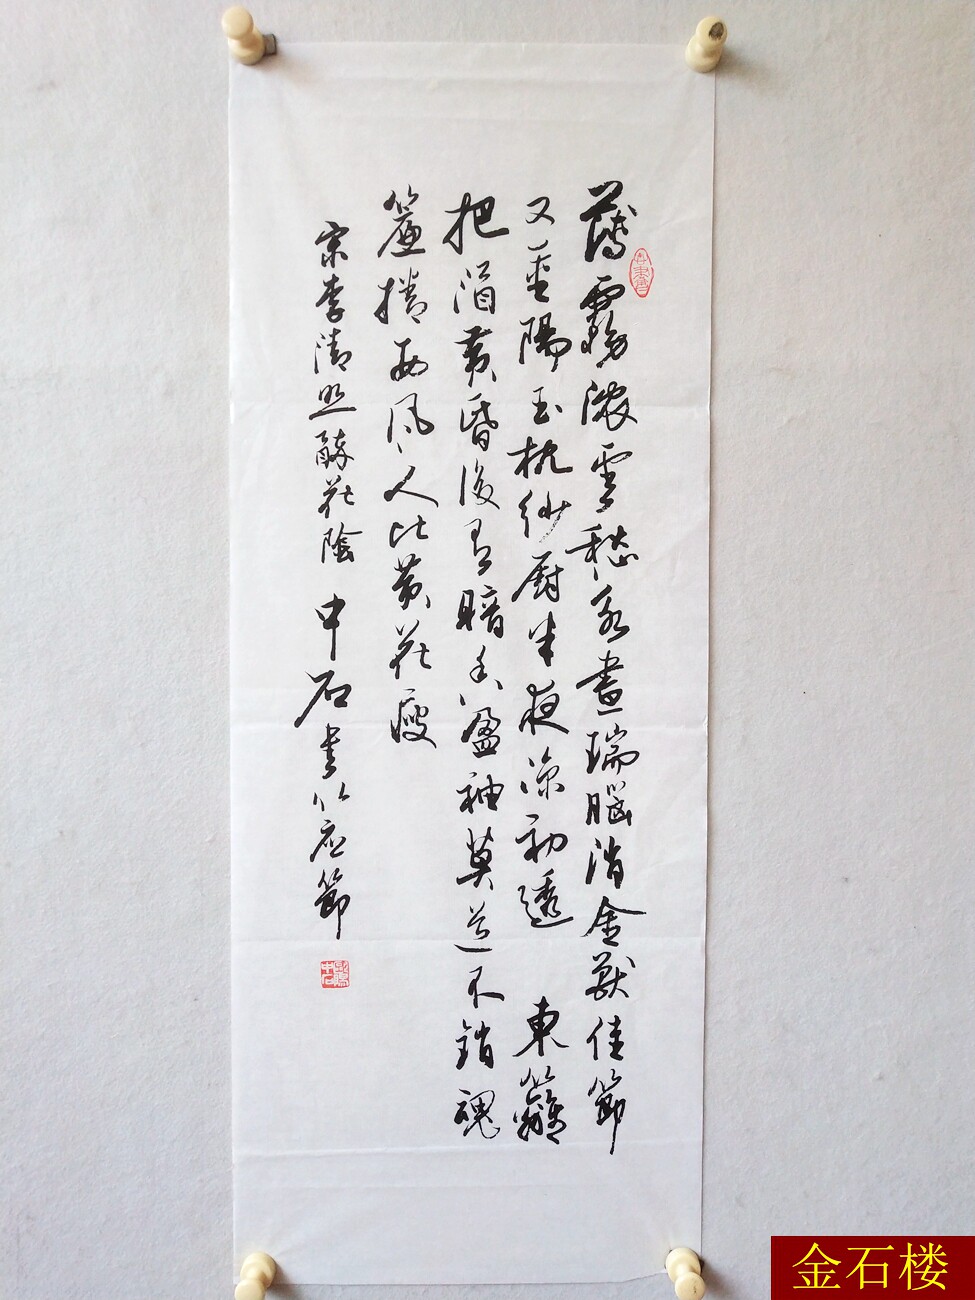 薄霧濃雲愁永晝瑞腦消金獸佳節
又重陽玉枕紗厨半夜涼初透 東籬
把酒黄昏後有暗香盈袖莫道不銷魂
簾捲西風人比黄花瘦
宋李清照醉花陰 中石書以應節
金石楼